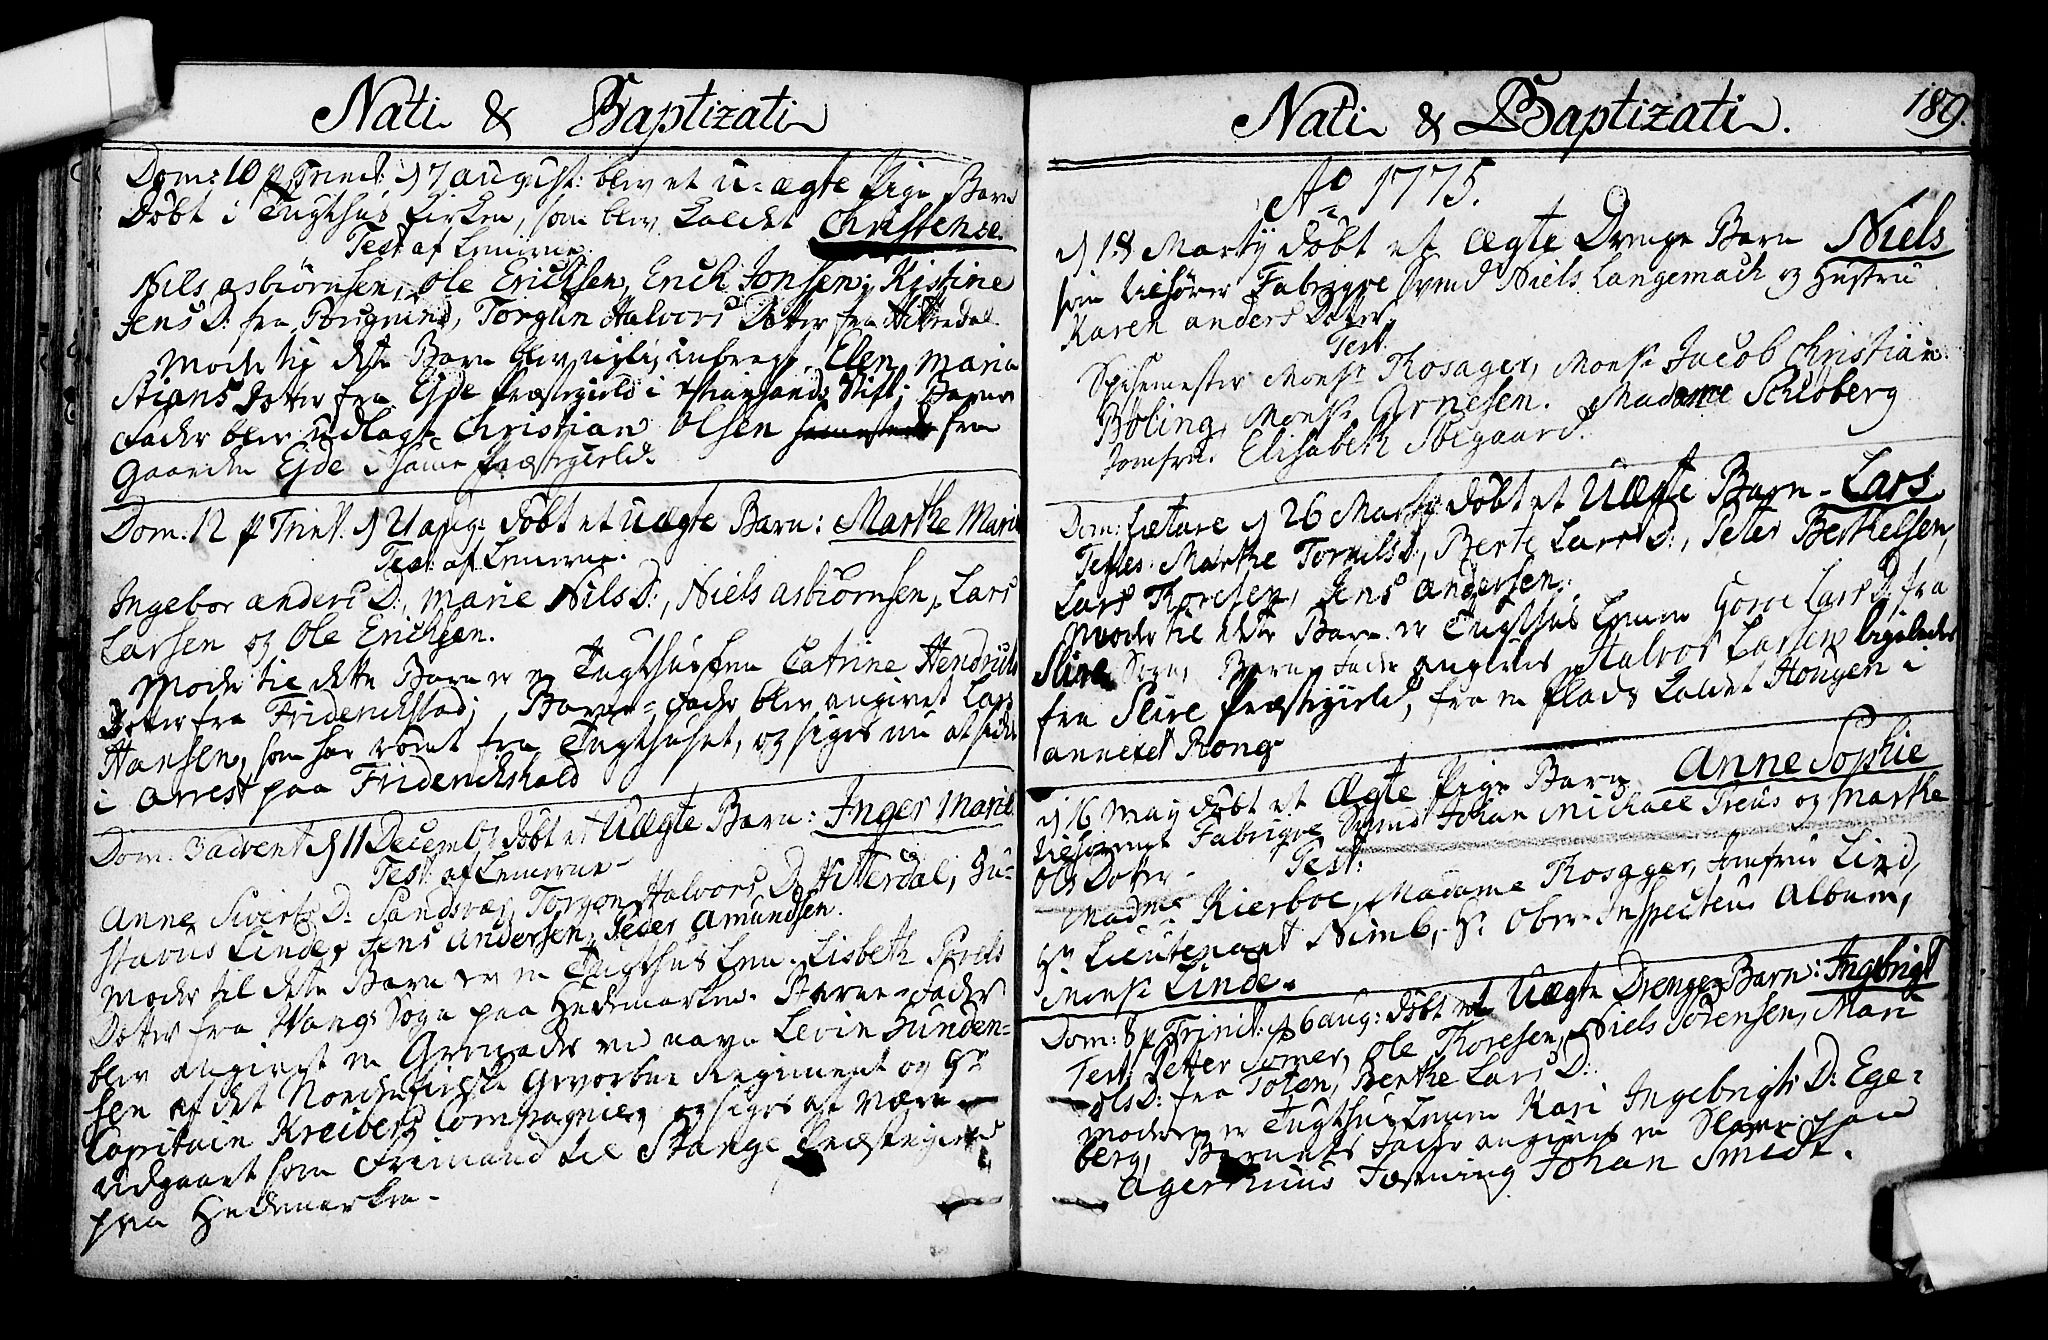 Nati & Baptizati
Dom: 10 p Trinit: d 7 august: blev et u-ægte Pige Barn
Døbt i Tugthus Kirken, som blev kaldet Christense.
Test af Lemerne
Nils asbiørnsen, Ole Erichsen, Erich Jonsen, Kistine
Jens D: fra Torgun Halvors Dotter fra Hitterdal
Moder til dette Barn blev inbragt Elen Maria
Stians Dotter fra Ejde Præstegield i Christiansands Stift; Barne
Fader blev udlagt Christian Olsen fra
Gaarden Ejde i samme Præstegield.
Dom: 12 p Trinit. d 21 aug: døbt et uægte Barn: Marthe Marie
Test: af Lemerne.
Ingebor anders D:, Marie Nils D:, Niels asbiørnsen, Lars
Larsen og Ole Erichsen.
Moder til dette Barn er en Tugthuslem Catrine Hendrichs
Dotter fra Friderichstad; Barne-Fader blev angivet Lars
Hansen, som har rømt fra Tugthuset, og siges nu at sidde
i Arrest paa Friderichshald
Dom: 3 advent d 11 Decemb: døbt et Uægte Barn: Inger Marie
Test: af Lemerne
Anne Siverts D: Sandsvær, Torgon Halvors D. Hitterdal, Gu-
stavus Linde, Jens Andersen, Peder Amundsen.
Moder til dette Barn er en Tugthus Lem. Lisbeth Povels
Dotter fra Wangs Sogn paa Hedemarken. Barne-Fader
blev angivet en Grenader ved navn Levin Gunden-
sen af det Nordenfieldske Gevorbne Regiment og Hr
Capitain Kreibers Compagnie, og siges at være
udgaaet som Frimand til Stange Præstegield
paa Hedemarken.
Nati & Baptizati. 189.
Ao 1775.
d 18 Martij døbt et ægte Drenge Barn Niels
som tilhører Fabrique Svend Niels Langemach og Hustru
Karen anders Doter.
Test:
Spisemester Monsr Rosager, Monsr Jacob Christian
Bøling, Monsr Arnesen. Madame Schioberg
Jomfru. Elisabeth Sølgaard.
Dom: Lætare d 26 Martij døbt et Uægte Barn - Lars
Testes: Marthe Tornils D:, Berte Lars D:, Peter Berthelsen,
Lars Thoresen, Jens Andersen.
Moder til dette Barn er Tugthus Lemm Goroe Lars D: fra
Slire Sogn, Barne Fader angives Halvor Larsen ligeledes
fra Slire Præstegield, fra en Plads kaldet Hougen i
annexet Rong
d 16 May døbt et Ægte Pige Barn Anne Sophie
tilhørende Fabrique Svend Johan Michael Preus og Marthe
Ols Doter - Test:
Madme Kierboe, Madame Rosager, Jomfrue Lind,
Hr Lieutenant Nimb, Hr Ober-Inspecteur Album,
Monsr Linde.
Dom: 8 p Trinit: d 6 aug: døbt et Uægte Drenge Barn: Ingebrigt
Test: Petter Sømer, Ole Thoresen, Niels Sørensen, Mari
Ols D: fra Toten, Berthe Lars D:
Moderen er Tugthus Lemm Kari Ingebrigts D: Ege-
berg, Barnets Fader angives en Slave paa
Agershuus Fæstning Johan Smidt.